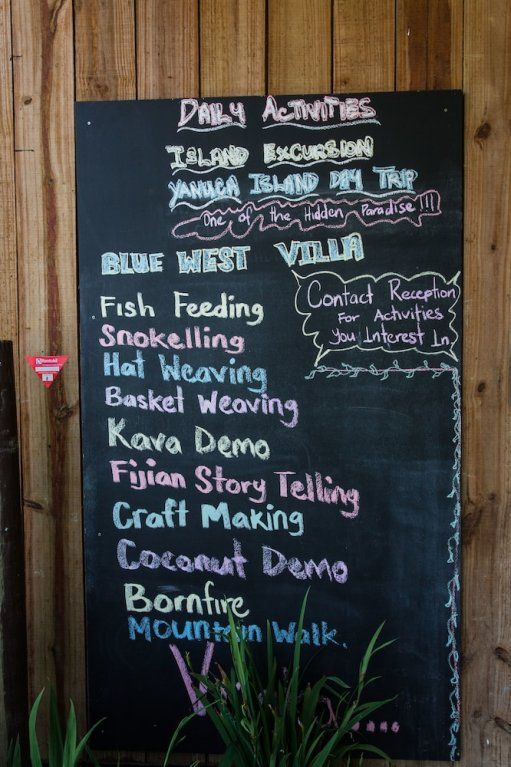 DAILY ACTIVITIES
ISLAND EXCURSION
YANUCA ISLAND DAY TRIP
One of the Hidden Paradise!!!
BLUE WEST VILLA
Contact Reception
For Activities
You Interest In
Fish Feeding
Snokelling
Hat Weaving
Basket Weaving
Kava Demo
Fijian Story Telling
Craft Making
Coconut Demo
Bornfire
Mountain Walk.